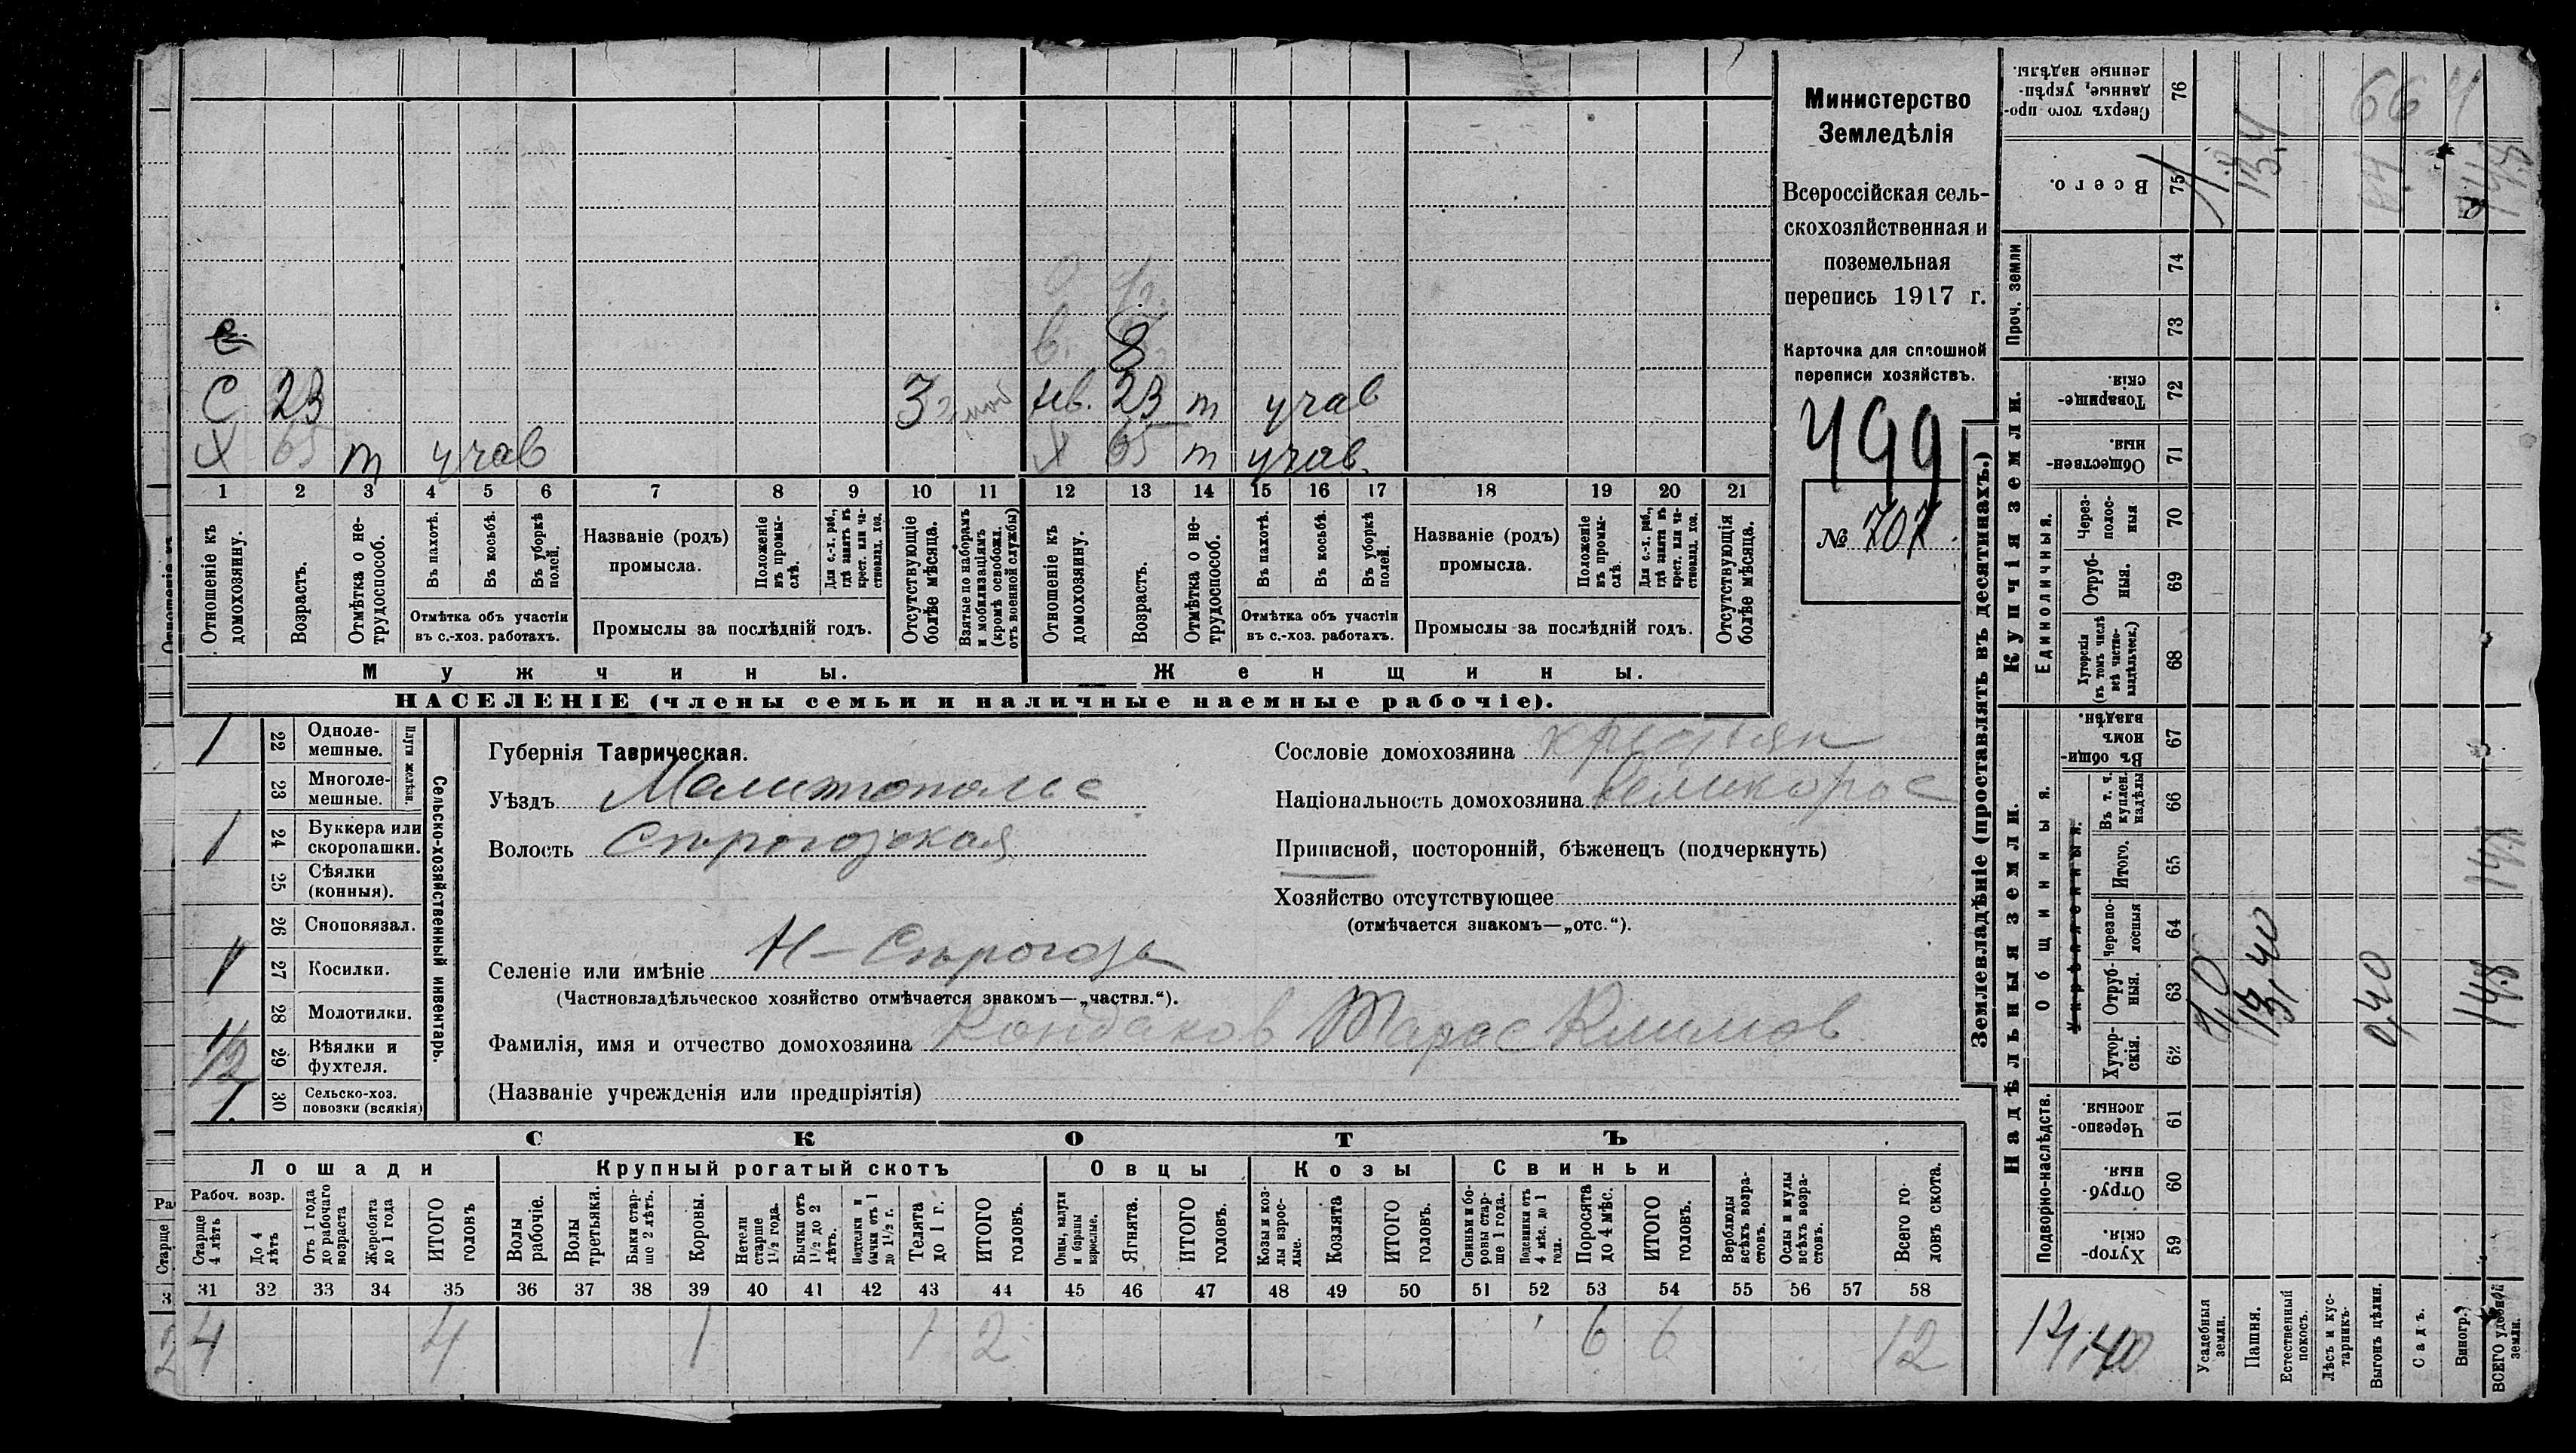 Министерство
Земледѣлія
Всероссійская сель-
скохозяйственная и
поземельная
перепись 1917 г.
Карточка для сплошной
переписи хозяйствъ.
499
№ 707
е
С 23 3 нв. 23 т учав
Х 65 т учав Х 65 т учав
1 2 3 4 5 6 7 8 9 10 11 12 13 14 15 16 17 18 19 20 21
Отношеніе къ домохозяину.
Возрастъ.
Отмѣтка о не-трудоспособ.
Въ пахотѣ.
Въ косьбѣ.
Въ уборкѣ полей.
Отмѣтка объ участіи
въ с.-хоз. работахъ.
Названіе (родъ)
промысла.
Положеніе въ промы-слѣ.
Для с.-х. раб., гдѣ занятъ въ крест. или ча-стновлад. хоз.
Промыслы за послѣдній годъ.
Отсутствующіе болѣе мѣсяца.
Взятые по наборамъ и мобилизаціямъ (кромѣ освобожд. отъ военной службы)
Отношеніе къ домохозяину.
Возрастъ.
Отмѣтка о не-трудоспособ.
Въ пахотѣ.
Въ косьбѣ.
Въ уборкѣ полей.
Отмѣтка объ участіи
въ с.-хоз. работахъ.
Названіе (родъ)
промысла.
Положеніе въ промы-слѣ.
Для с.-х. раб., гдѣ занята въ крест. или ча-стновлад. хоз.
Промыслы за послѣдній годъ.
Отсутствующія болѣе мѣсяца.
Мужчины. Женщины.
НАСЕЛЕНІЕ (члены семьи и наличные наемные рабочіе).
Сельско-хозяйственный инвентарь.
Плуги желѣзн.
1 22 Одноле-мешные.
23 Многоле-мешные.
1 24 Буккера или скоропашки.
25 Сѣялки (конныя).
26 Сноповязал.
1 27 Косилки.
28 Молотилки.
1/2 29 Вѣялки и фухтеля.
1. 30 Сельско-хоз. повозки (всякія)
Губернія Таврическая.
Уѣздъ Мелитопольс
Волость Сѣрогозская
Селеніе или имѣніе Н-Сѣрогозы
(Частновладѣльческое хозяйство отмѣчается знакомъ—„частвл.“).
Сословіе домохозяина крестьян
Національность домохозяина Великорос
Приписной, посторонній, бѣженецъ (подчеркнуть)
Хозяйство отсутствующее
(отмѣчается знакомъ—„отс.“).
Фамилія, имя и отчество домохозяина Кондаков Тарас Климов
(Названіе учрежденія или предпріятія)
СКОТЪ
Лошади Крупный рогатый скотъ Овцы Козы Свиньи
Рабоч. возр.
Старше 4 лѣтъ
До 4 лѣтъ
Отъ 1 года до рабочаго возраста
Жеребята до 1 года
ИТОГО головъ
Волы рабочіе.
Волы третьяки.
Быки стар-ше 2 лѣтъ.
Коровы.
Нетели старше 1½ года.
Бычки отъ 1½ до 2 лѣтъ.
Подтелки и бычки отъ 1 до 1½ г.
Телята до 1 г.
ИТОГО головъ.
Овцы, валухи и бараны взрослые.
Ягнята.
ИТОГО головъ.
Козы и коз-лы взрос-лые.
Козлята
ИТОГО головъ.
Свиньи и бо-ровы стар-ше 1 года.
Подсвинки отъ 4 мѣс. до 1 года.
Поросята до 4 мѣс.
ИТОГО головъ.
Верблюды всѣхъ возра-стовъ.
Ослы и мулы всѣхъ возра-стовъ.
Всего го-ловъ скота.
31 32 33 34 35 36 37 38 39 40 41 42 43 44 45 46 47 48 49 50 51 52 53 54 55 56 57 58
4 4 1 1 2 6 6 12
Землевладѣніе (проставлять въ десятинахъ.)
Купчія земли.
Надѣльныя земли.
Сверхъ того про-данные, укрѣп-ленные надѣлы. 76
Всего. 75
Проч. земли 74 73
Товарище-скія. 72
Обществен-ныя. 71
Единоличныя.
Через-полос-ныя 70
Отруб-ныя. 69
Хуторскія (въ томъ числѣ всѣ частно-владѣльческ.) 68
Общинныя.
Въ общи-номъ владѣн. 67
Укрѣпленныя.
Въ т. ч. куплен. надѣлы 66
Итого. 65
Черезпо-лосныя 64
Отруб-ныя. 63
Хутор-скія. 62
Подворно-наслѣдств.
Черезпо-лосныя. 61
Отруб-ныя. 60
Хутор-скія. 59
14,40
13,40
0,40
14,8
13,4
Усадебныя земли.
Пашня.
Естественный покосъ.
Лѣсъ и кус-тарникъ.
Выгонъ цѣлин.
Садъ.
Виногр.
ВСЕГО удобной земли.